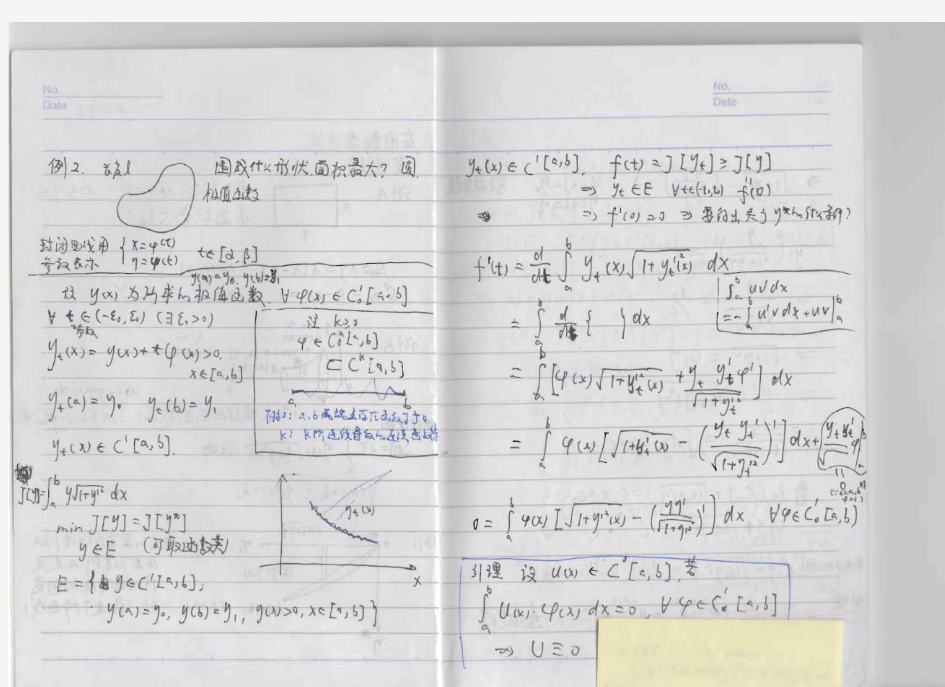 No.
Date
例2.
围成什么形状面积最大? 圆.
极值函数
封闭曲线用
参数表示 { x=φ(t) y=ψ(t) t∈[α, β]
y(a)=y₀, y(b)=y₁
设 y(x) 为所求的极值函数. ∀ φ(x) ∈ C₀'[a,b]
∀ t ∈ (-ε₁, ε₁) (∃ ε₁>0)
参数
y_t(x) = y(x) + tφ(x) >0,
x∈[a,b]
y_t(a) = y₀ y_t(b) = y₁
y_t(x) ∈ C'[a,b].
注 k≥0
φ ∈ C₀ᵏ[a,b]
⊂ Cᵏ[a,b]
a b
J[y]=∫ₐᵇ y√(1+y'²) dx
min J[y] = J[y*]
y∈E (可取函数类)
E = { y∈C'[a,b],
y(a)=y₀, y(b)=y₁, y(x)>0, x∈[a,b] }
y_t(x)
x
No.
Date
y_t(x) ∈ C'[a,b]. f(t) = J[y_t] ≥ J[y]
⇒ y_t ∈ E f'(0)
⇒ f'(0)=0 ⇒
f'(t) = d/dt ∫ₐᵇ y_t(x)√(1+y_t'²(x)) dx
∫ₐᵇ uv'dx
= -∫ₐᵇ u'v dx + uv|ₐᵇ
= ∫ₐᵇ d/dt { } dx
= ∫ₐᵇ [φ(x)√(1+y_t'²(x)) + y_t y_t'φ'/√(1+y_t'²)] dx
= ∫ₐᵇ φ(x)[√(1+y_t'²(x)) - (y_t y_t'/√(1+y_t'²))'] dx +
0 = ∫ₐᵇ φ(x)[√(1+y'²(x)) - (yy'/√(1+y'²))'] dx ∀φ∈C₀'[a,b]
引理 设 u(x) ∈ C⁰[a,b], 若
∫ₐᵇ u(x)·φ(x) dx=0, ∀ φ∈C₀'[a,b]
⇒ U≡0